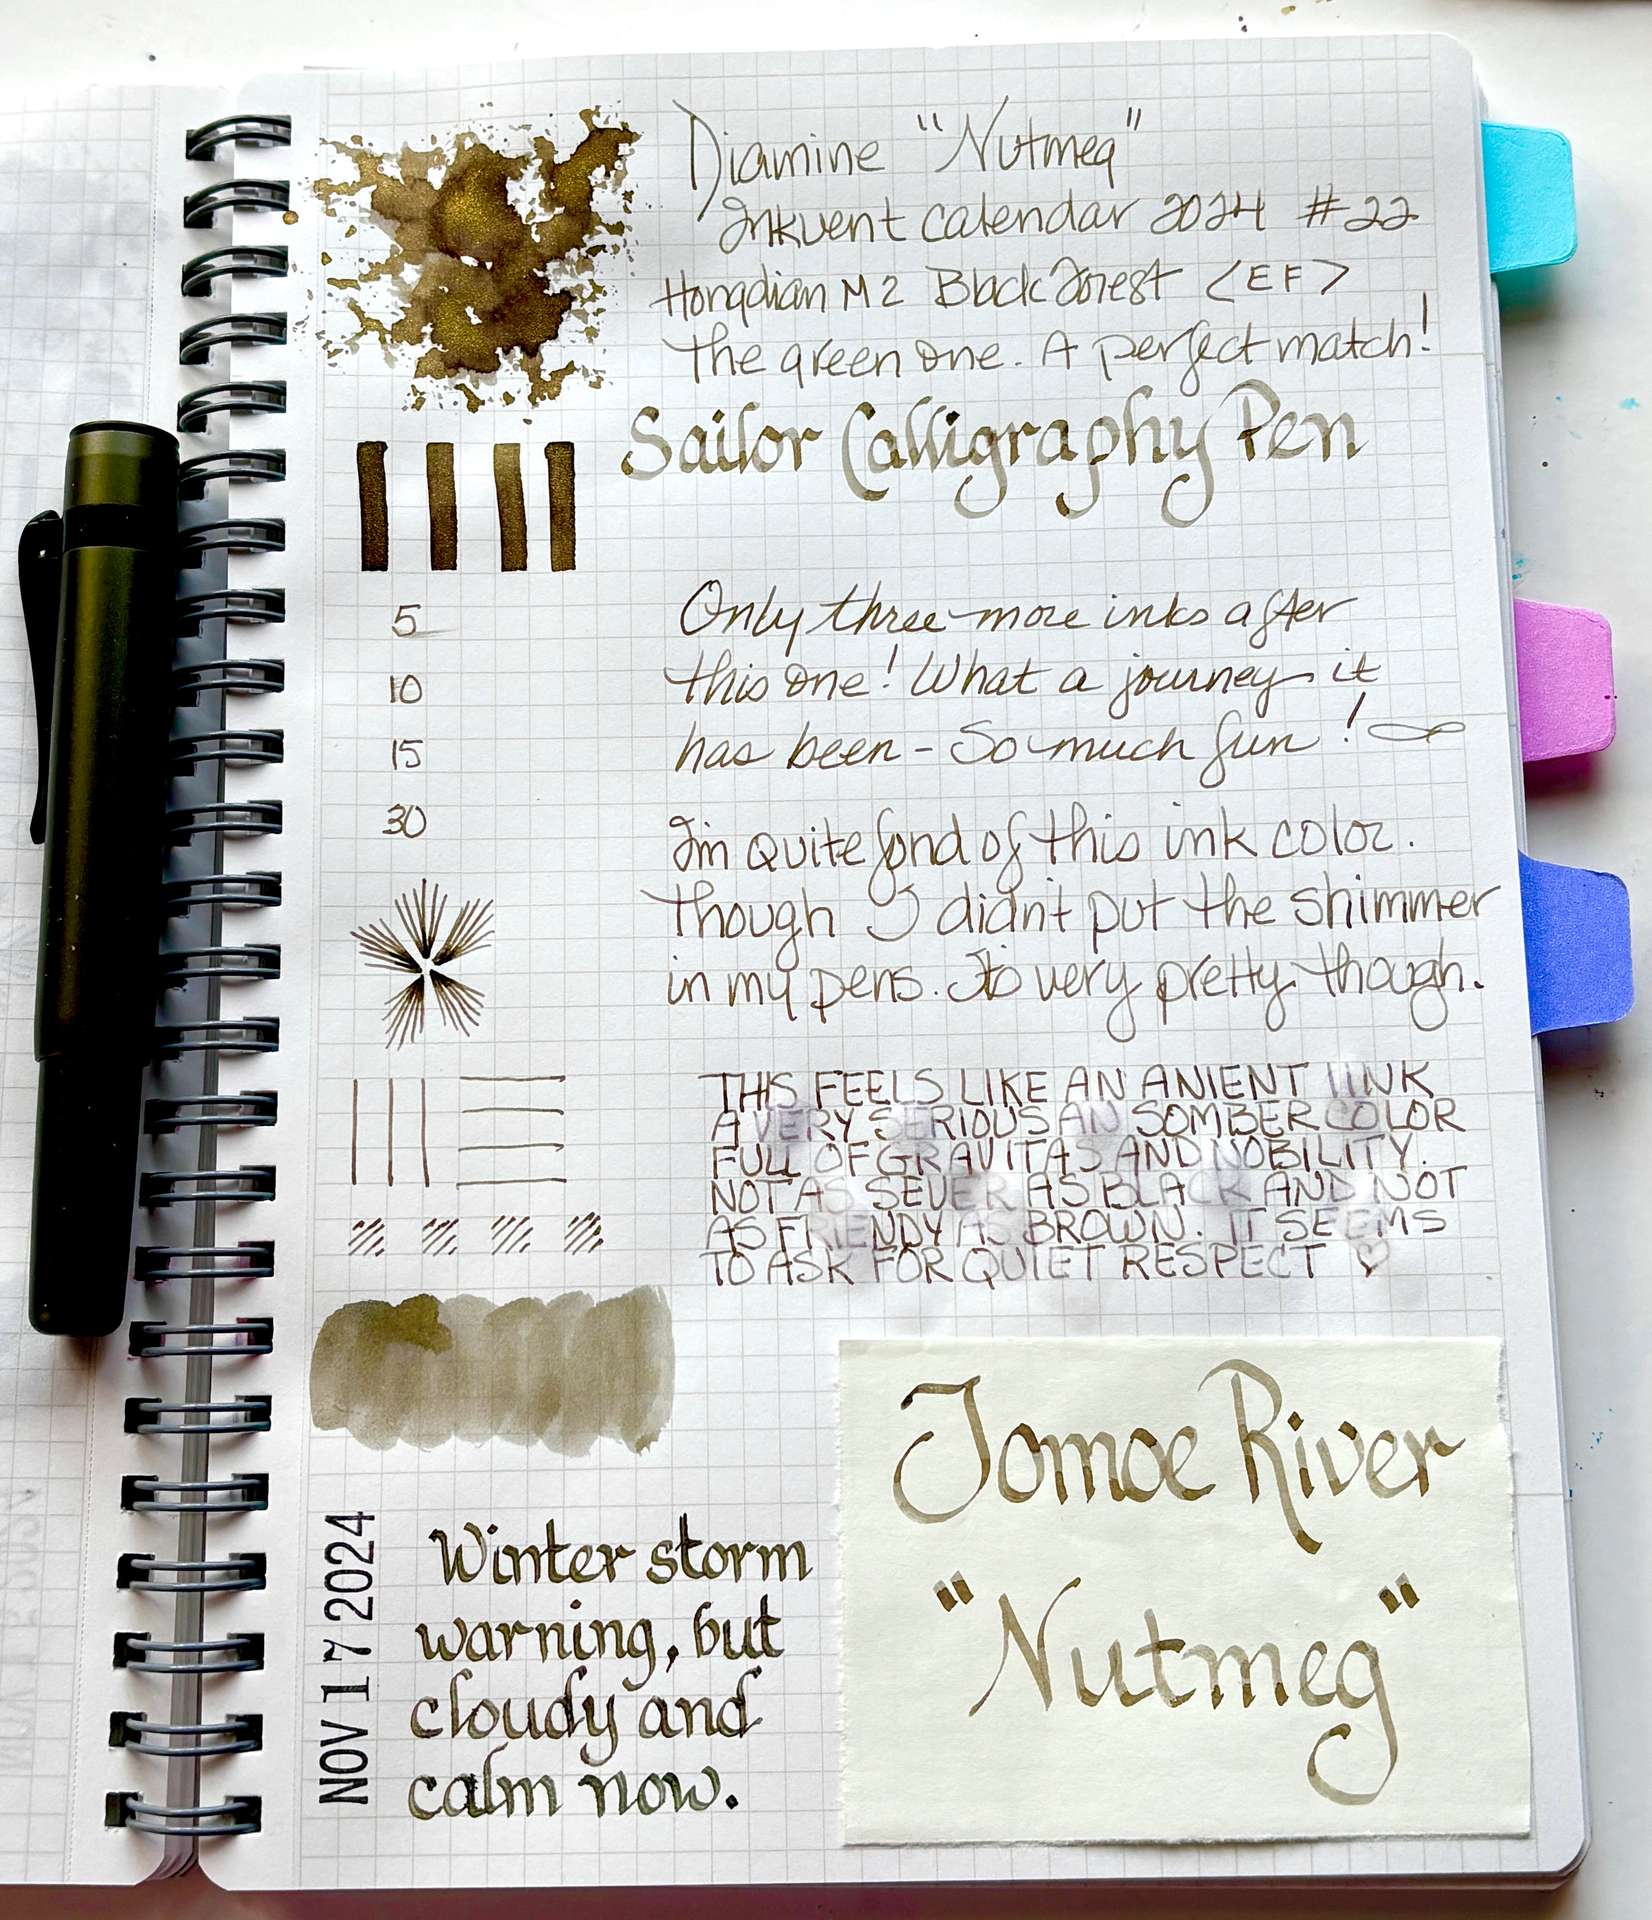 Diamine "Nutmeg"
Inkvent Calendar 2024 #22
Hongdian M2 Black Forest <EF>
The green one. A perfect match!
Sailor Calligraphy Pen
5
10
15
30
Only three more inks after
this one! What a journey it
has been - So much fun!
I'm quite fond of this ink color.
Though I didn't put the shimmer
in my pens. It's very pretty though.
THIS FEELS LIKE AN ANIENT INK
A VERY SERIOUS AN SOMBER COLOR
FULL OF GRAVITAS AND NOBILITY.
NOT AS SEVER AS BLACK AND NOT
AS FRIENDY AS BROWN. IT SEEMS
TO ASK FOR QUIET RESPECT ♡
NOV 17 2024
Winter storm
warning, but
cloudy and
calm now.
Tomoe River
"Nutmeg"